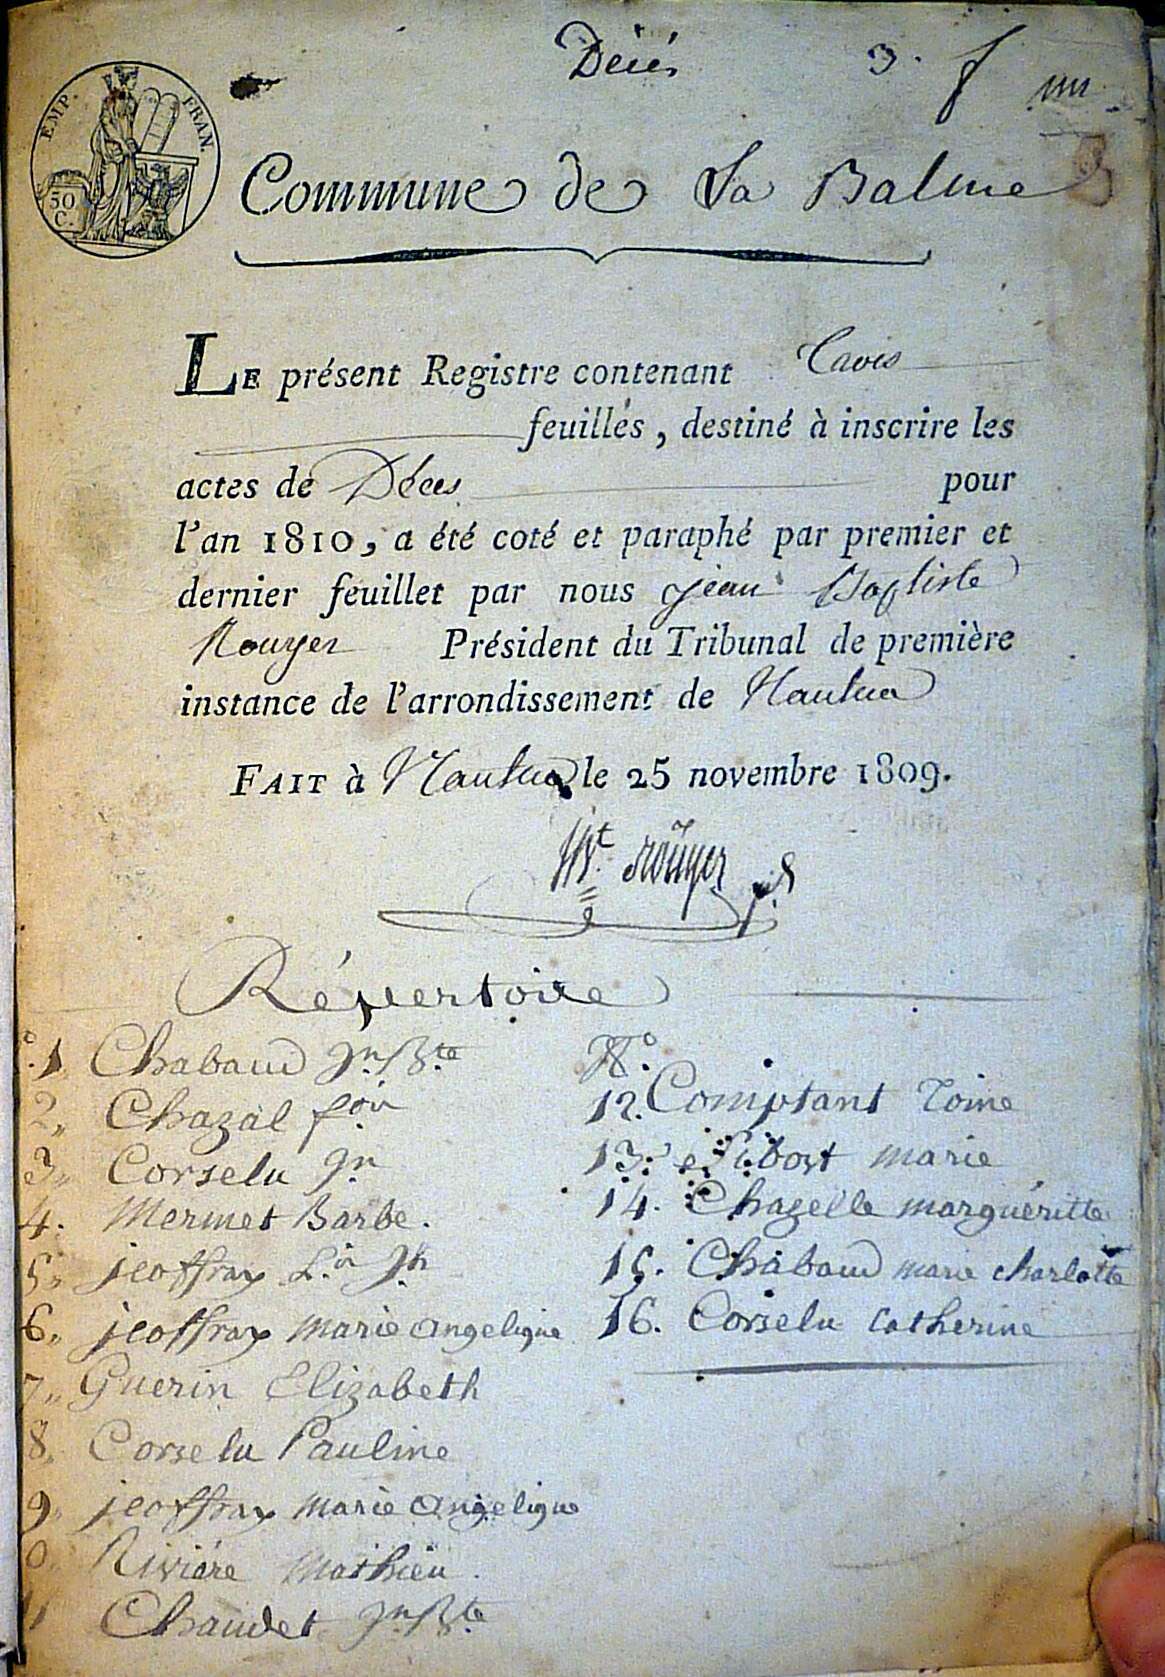 Décès 3. f
EMP. FRAN.
50 C.
Commune de La Balme
LE présent Registre contenant Trois
feuillés, destiné à inscrire les
actes de Décès pour
l'an 1810, a été coté et paraphé par premier et
dernier feuillet par nous jean Baptiste
Rouyer Président du Tribunal de première
instance de l'arrondissement de Nantua
FAIT à Nantua le 25 novembre 1809.
Rouyer
Répertoire
1 Chabaud Jn Bte
2 Chazal fois
3 Corselu Jn
4. Mermet Barbe.
5 jeoffray Jh
6 jeoffray marie angelique
7 Guerin Elizabeth
8 Corselu Pauline
9 jeoffray marie angelique
0 Riviére Mathieu.
11 Chaudet Jn Bte
No.
12. Comptant Toine
13. Sibost marie
14. Chazelle marguéritte
15. Chabaud marie charlotte
16. Corselu Catherine